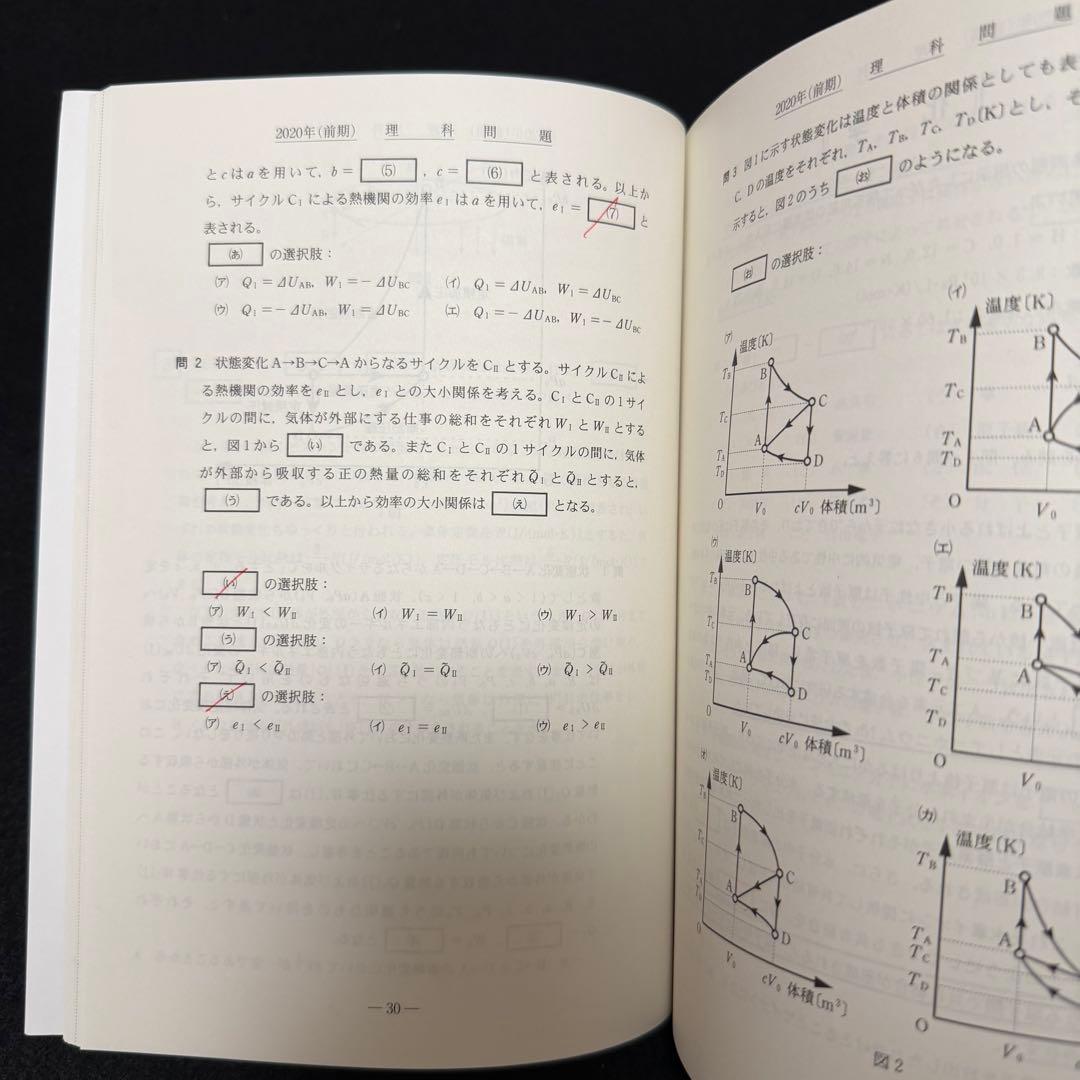 2020年(前期) 理科問題
とcはaを用いて, b = (5) , c = (6) と表される。以上か
ら, サイクルCⅠによる熱機関の効率eⅠはaを用いて, eⅠ = (7) と
表される。
(あ) の選択肢:
(ア) Q₁ = ΔU_AB, W₁ = − ΔU_BC (イ) Q₁ = ΔU_AB, W₁ = ΔU_BC
(ウ) Q₁ = − ΔU_AB, W₁ = ΔU_BC (エ) Q₁ = − ΔU_AB, W₁ = − ΔU_BC
問 2 状態変化 A→B→C→A からなるサイクルを CⅡ とする。サイクル CⅡ によ
る熱機関の効率を eⅡ とし, eⅠ との大小関係を考える。CⅠ と CⅡ の 1 サイ
クルの間に, 気体が外部にする仕事の総和をそれぞれ WⅠ と WⅡ とする
と, 図1から (い) である。また CⅠ と CⅡ の 1 サイクルの間に, 気体
が外部から吸収する正の熱量の総和をそれぞれ Q̃Ⅰ と Q̃Ⅱ とすると,
(う) である。以上から効率の大小関係は (え) となる。
(い) の選択肢:
(ア) WⅠ < WⅡ (イ) WⅠ = WⅡ (ウ) WⅠ > WⅡ
(う) の選択肢:
(ア) Q̃Ⅰ < Q̃Ⅱ (イ) Q̃Ⅰ = Q̃Ⅱ (ウ) Q̃Ⅰ > Q̃Ⅱ
(え) の選択肢:
(ア) eⅠ < eⅡ (イ) eⅠ = eⅡ (ウ) eⅠ > eⅡ
— 30 —
2020年(前期) 理科問題
問 3 図1に示す状態変化は温度と体積の関係としても表
C, D の温度をそれぞれ, T_A, T_B, T_C, T_D〔K〕とし, そ
示すと, 図2のうち (お) のようになる。
(お) の選択肢:
(ア)
温度〔K〕
T_B
B
T_C
C
T_A
A
T_D
D
0
V₀
cV₀ 体積〔m³〕
(イ)
温度〔K〕
T_B
B
T_C
T_A
A
T_D
O
V₀
(ウ)
温度〔K〕
T_B
B
T_C
C
T_A
A
T_D
D
0
V₀
cV₀ 体積〔m³〕
(エ)
温度〔K〕
T_B
B
T_A
A
T_C
T_D
O
V₀
(オ)
温度〔K〕
T_B
B
T_C
C
T_A
A
T_D
D
0
V₀
cV₀ 体積〔m³〕
(カ)
温度〔K〕
T_B
B
T_A
A
T_C
T_D
O
V₀
図2